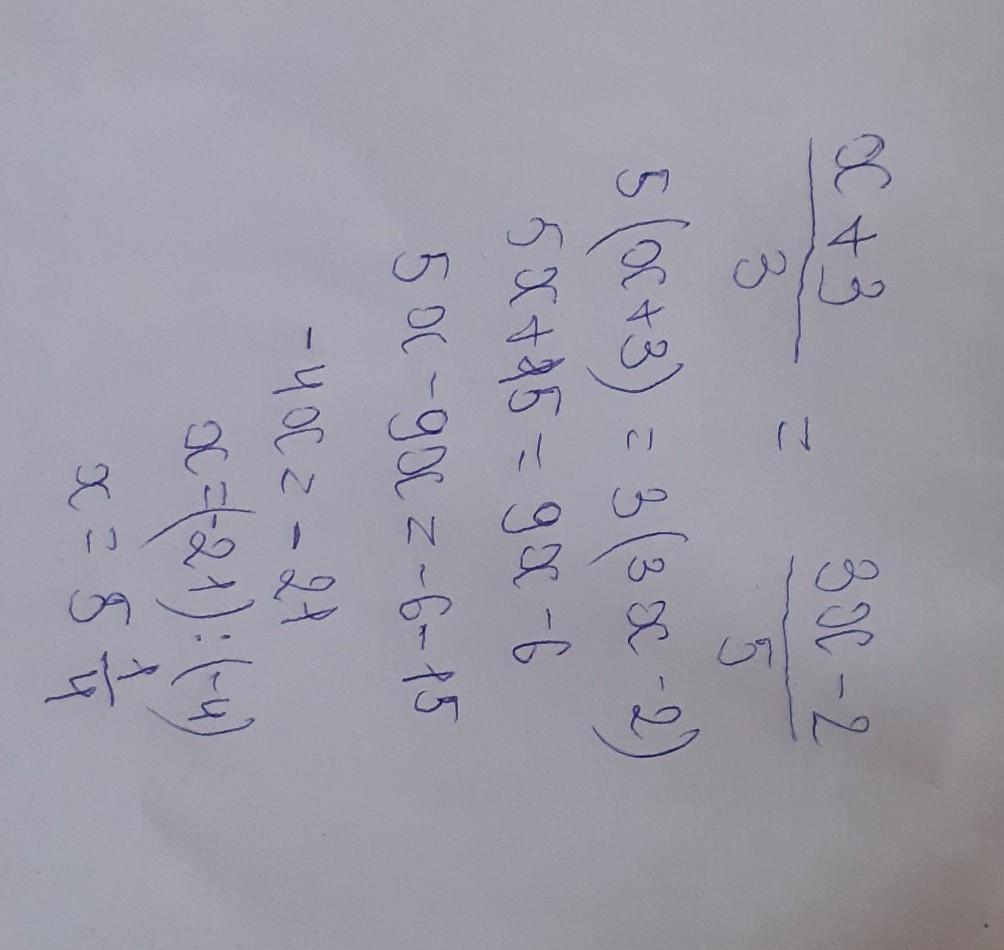 x+3/3 = 3x-2/5
5(x+3) = 3(3x-2)
5x+15 = 9x-6
5x-9x = -6-15
-4x = -21
x = (-21):(-4)
x = 5 1/4